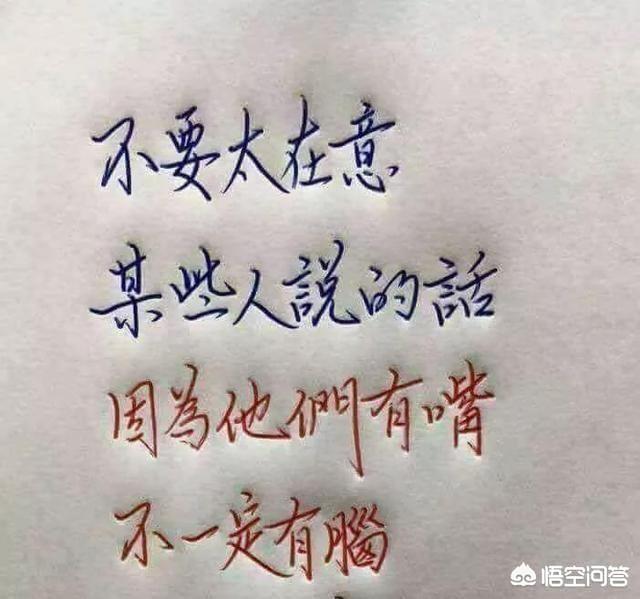 不要太在意
某些人説的話
因為他們有嘴
不一定有腦
悟空问答